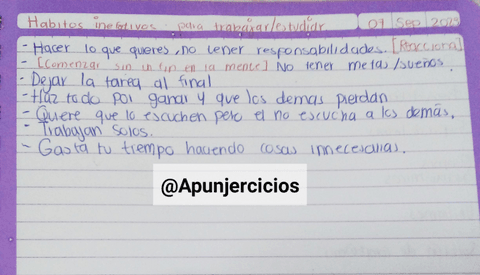 Habitos inefectivos - para trabajar/estudiar 07 Sep 2023
- Hacer lo que quieres, no tener responsabilidades. [Reacciona]
- [Comenzar sin un fin en la mente] No tener metas/sueños.
- Dejar la tarea al final
- Haz todo por ganar y que los demas pierdan
- Quiere que lo escuchen pero el no escucha a los demás.
- Trabajan solos.
- Gasta tu tiempo haciendo cosas innecesarias.
@Apunjercicios